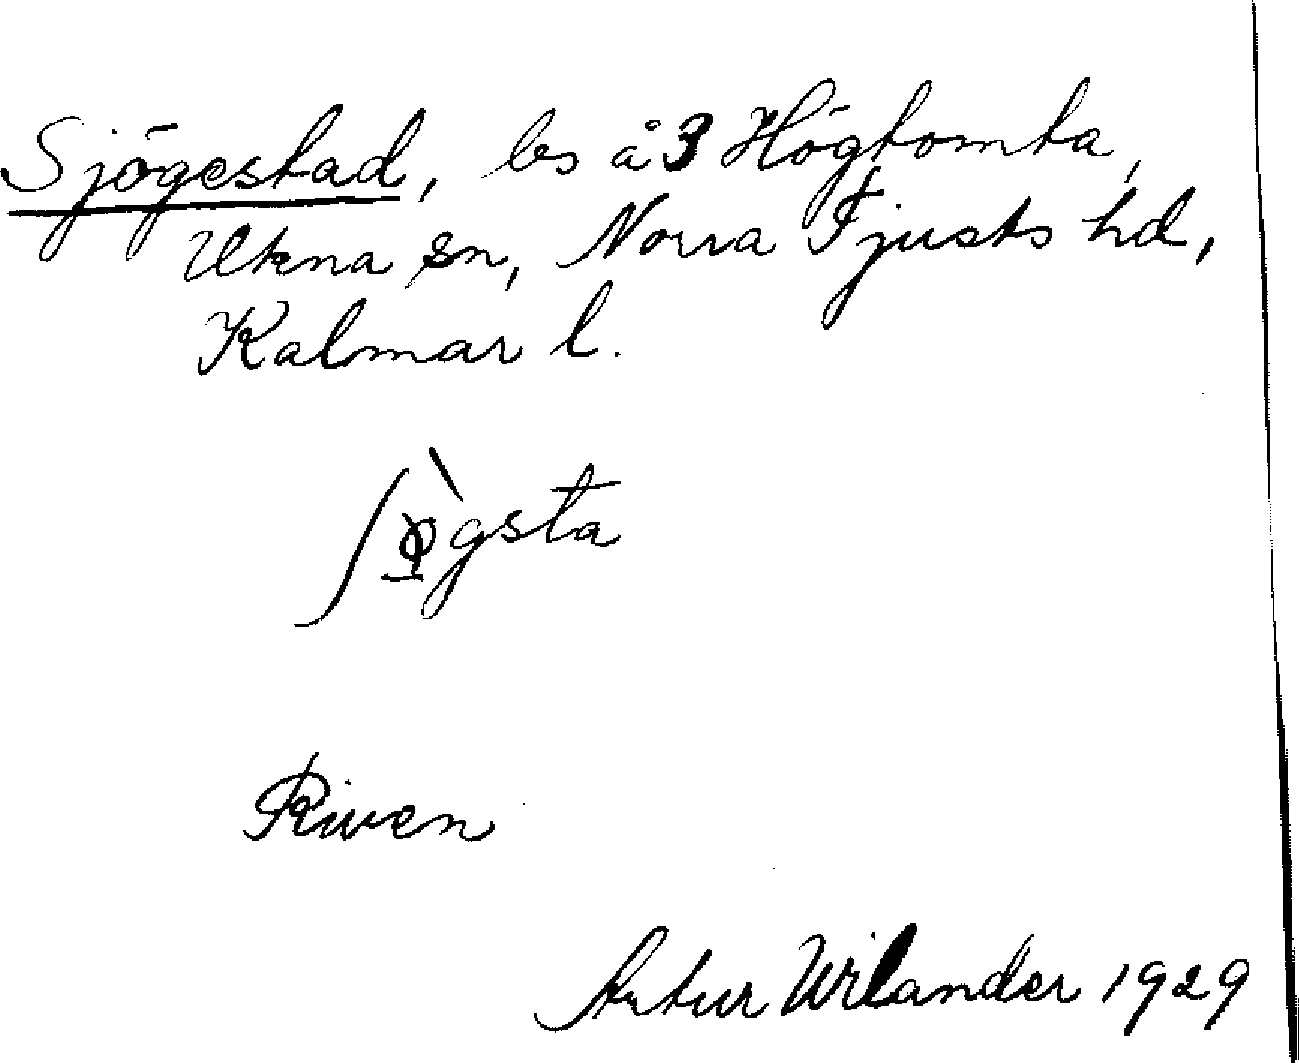 Sjögestad, bs å 3 Högtomta,
Ukna sn, Norra Tjusts hd,
Kalmar l.
ʃø̀gsta
Riven
Artur Wilander 1929